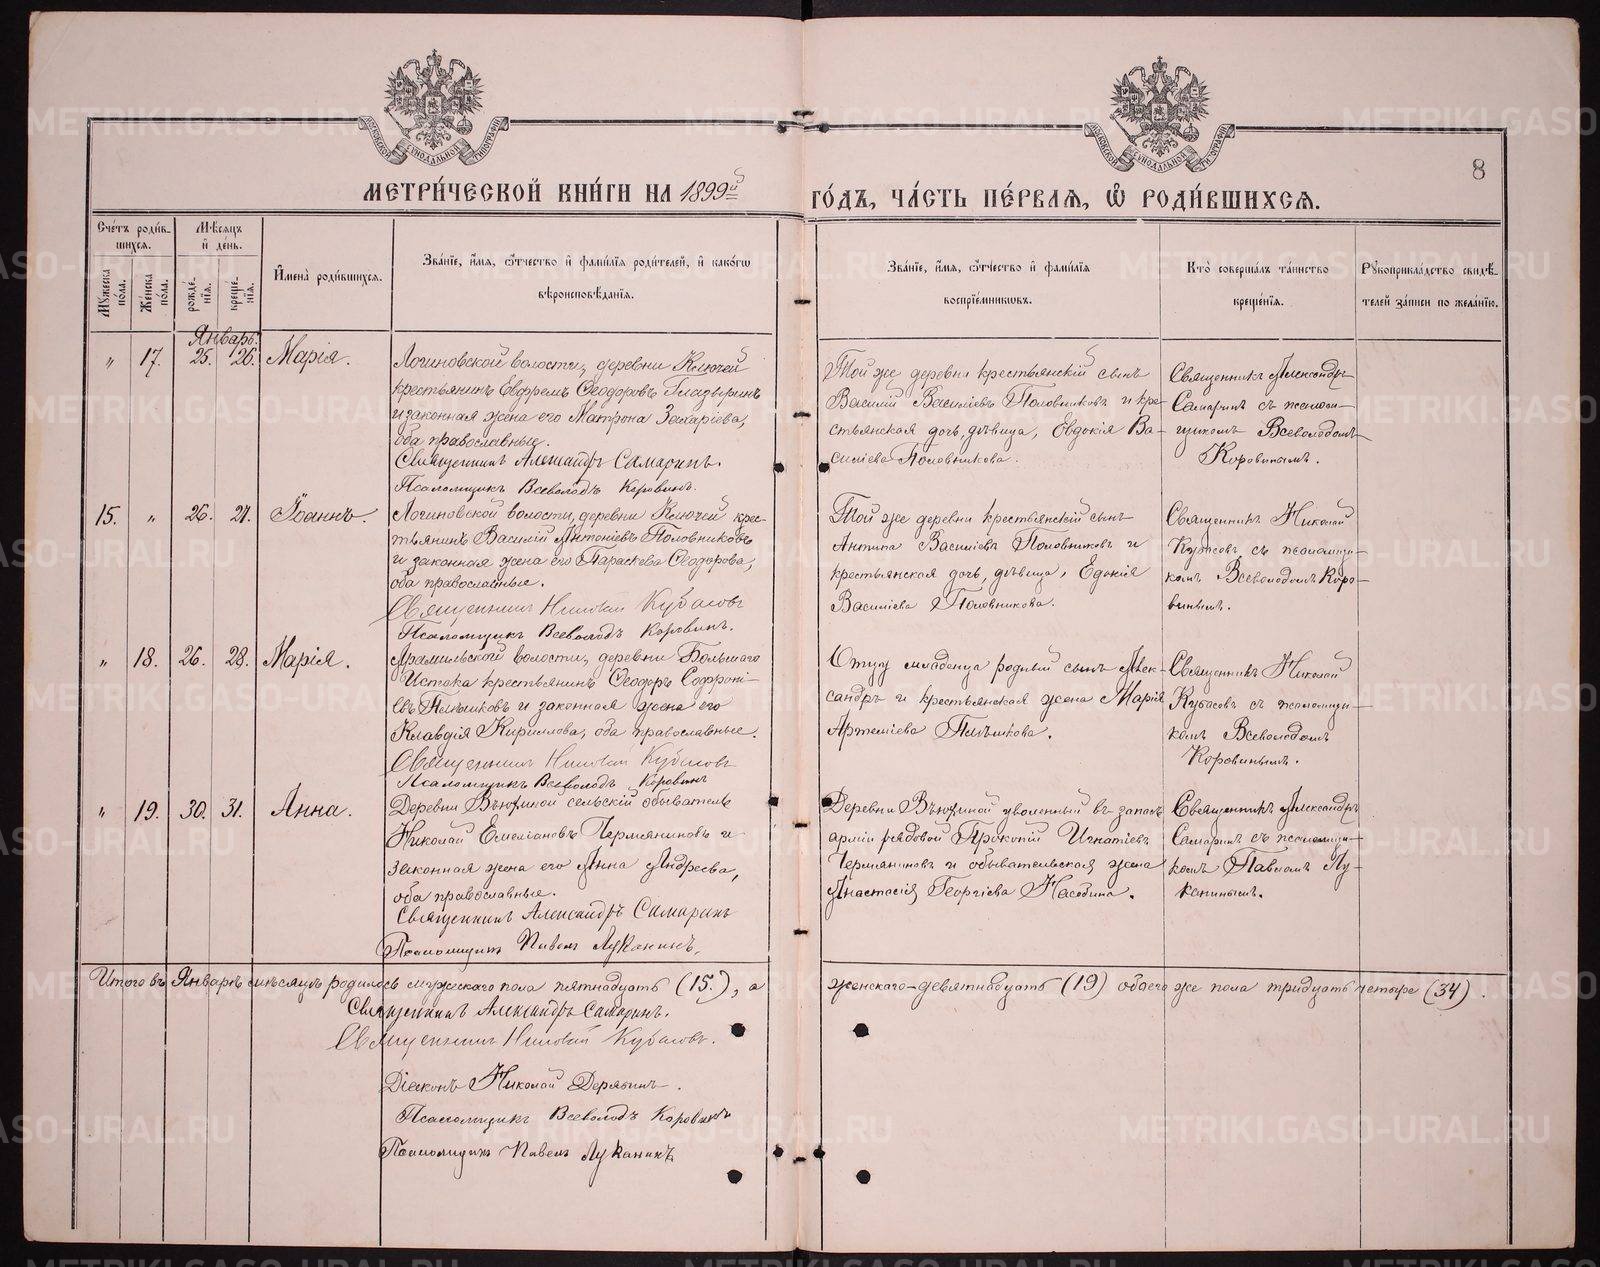 МОСКОВСКОЙ СѴНОДАЛЬНОЙ ТИПОГРАФІИ
МОСКОВСКОЙ СѴНОДАЛЬНОЙ ТИПОГРАФІИ
8
МЕТРИ́ЧЕСКОЙ КНИ́ГИ НА 1899й ГО́ДЪ, ЧА́СТЬ ПЕ́РВАѦ, Ѡ РОДИ́ВШИХСѦ.
Сче́тъ роди́в-
шихсѧ.
Мꙋжеска по́ла.
Же́нска по́ла.
Мѣ́сѧцъ
и҆ де́нь.
рожде́-
нїѧ.
креще́-
нїѧ.
И҆мена̀ роди́вшихсѧ.
Зва́нїе, и҆́мѧ, ѻ҆́тчество и҆ фами́лїѧ роди́телей, и҆ како́гѡ
вѣроисповѣ́данїѧ.
Зва́нїе, и҆́мѧ, ѻ҆́тчество и҆ фами́лїѧ
воспрїе́мникѡвъ.
Кто̀ соверша́лъ та́инство
креще́нїѧ.
Рꙋкоприкла́дство свидѣ́-
телей за́писи по жела́нїю.
Январь.
" 17. 25. 26. Марія.
Логиновской волости, деревни Ключей
крестьянинъ Евфремъ Ѳеодоровъ Глазыринъ
и законная жена его Матрона Захаріева,
оба православные.
Священникъ Александръ Самаринъ.
Псаломщикъ Всеволодъ Коровинъ.
Той же деревни крестьянскій сынъ
Василій Василіевъ Половниковъ и кре-
стьянская дочь, дѣвица, Евдокія Ва-
силіева Половникова.
Священникъ Александръ
Самаринъ съ псалом-
щикомъ Всеволодомъ
Коровинымъ.
15. " 26. 27. Іоаннъ.
Логиновской волости, деревни Ключей крес-
тьянинъ Василій Антоніевъ Половниковъ
и законная жена его Параскева Ѳеодорова,
оба православные.
Священникъ Николай Кубасовъ
Псаломщикъ Всеволодъ Коровинъ.
Той же деревни крестьянскій сынъ
Антипа Василіевъ Половниковъ и
крестьянская дочь, дѣвица, Едокія
Василіева Половникова.
Священникъ Николай
съ псаломщи-
комъ Всеволодомъ Коро-
винымъ.
" 18. 26. 28. Марія.
Арамильской волости, деревни Большаго
Истока крестьянинъ Ѳеодоръ Софроні-
евъ Плѣшковъ и законная жена его
Клавдія Кириллова, оба православные.
Священникъ Николай Кубасовъ
Псаломщикъ Всеволодъ Коровинъ
Отцу младенца родный сынъ Алек-
сандръ и крестьянская жена Марія
Артеміева Плѣшкова.
Священникъ Николай
Кубасовъ съ псаломщи-
комъ Всеволодомъ
Коровинымъ.
" 19. 30. 31. Анна.
Деревни Вьюхиной сельскій обыватель
Николай Емеліановъ Пермяниновъ и
законная жена его Анна Андреева,
оба православные.
Священникъ Александръ Самаринъ
Псаломщикъ Павелъ Луканинъ.
Деревни Вьюхиной уволенный въ запасъ
арміи рядовой Прокопій Игнатіевъ
Пермяниновъ и обывательская жена
Анастасія Георгіева
Священникъ Александръ
Самаринъ съ псаломщи-
комъ Павломъ Лу-
канинымъ.
Итого въ Январѣ мѣсяцѣ родилось мужескаго пола пятнадцать (15.), а женскаго-девятнадцать (19) обоего же пола тридцать четыре (34).
Священникъ Александръ Самаринъ.
Священникъ Николай Кубасовъ.
Діаконъ Николай Дерябинъ.
Псаломщикъ Всеволодъ Коровинъ
Псаломщикъ Павелъ Луканинъ
METRIKI.GASO-URAL.RU